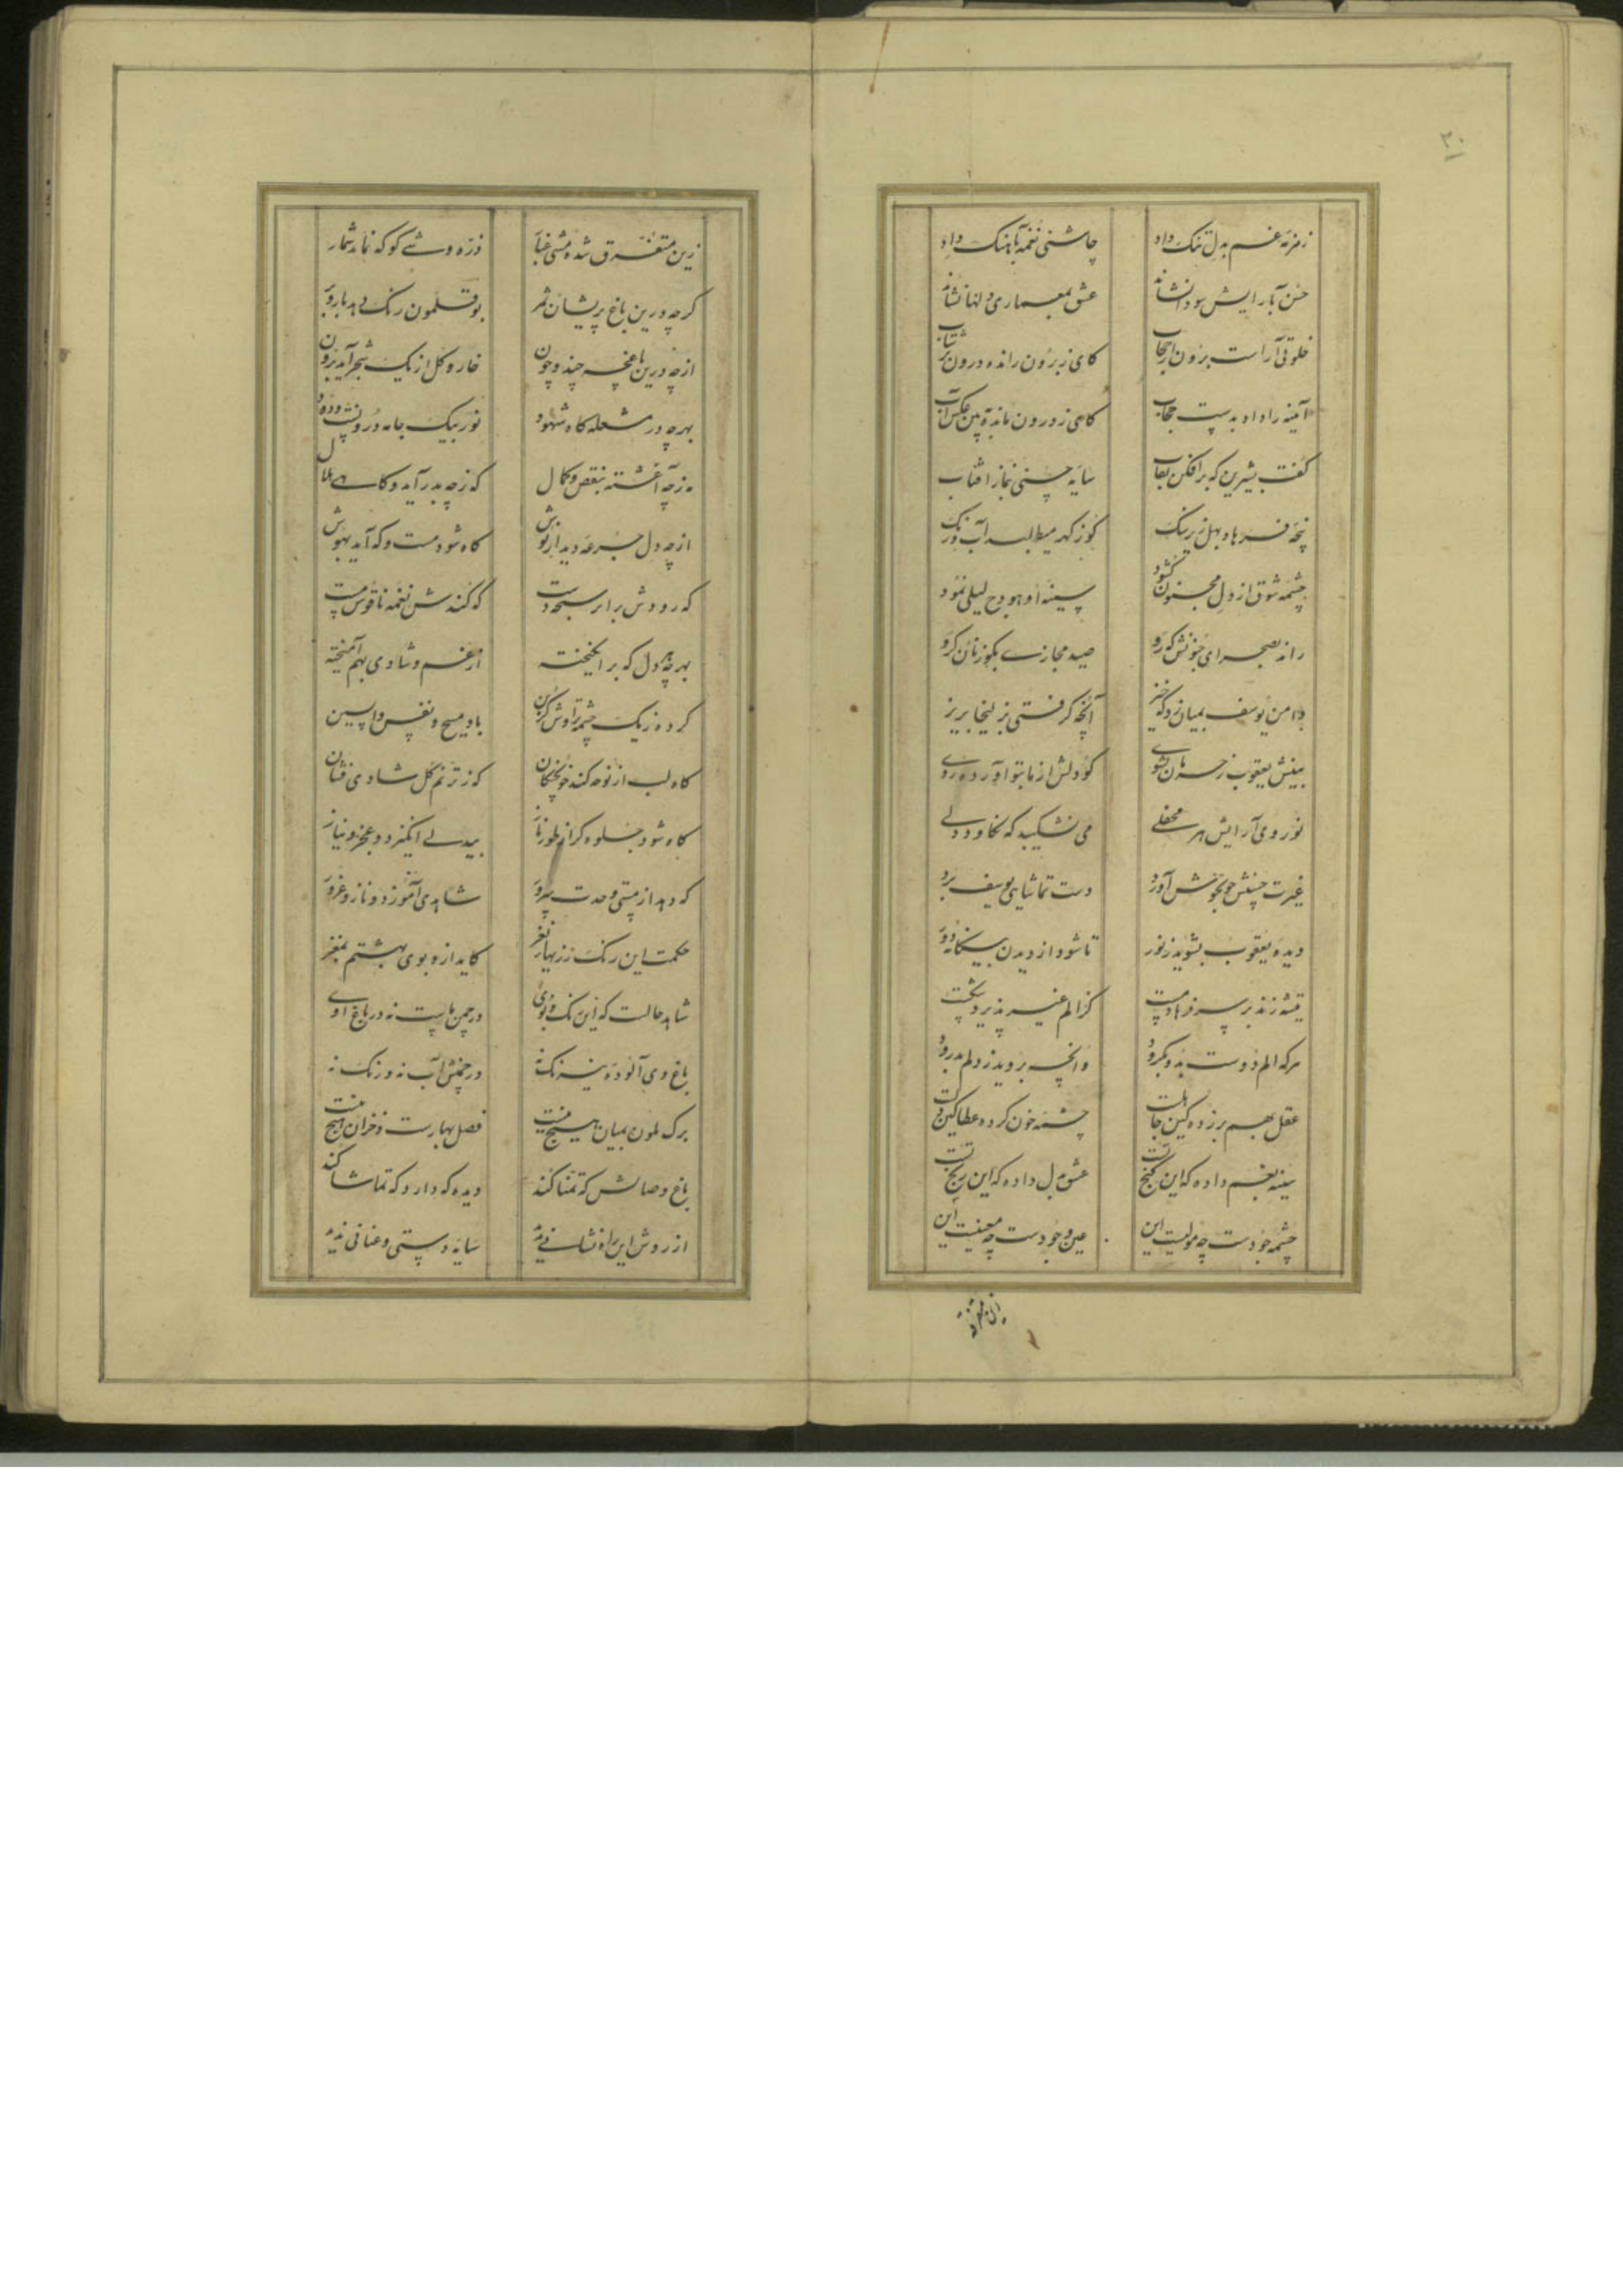 ۳۰
زمزمه غم بدل تنک داد
چاشنی نغمه بآهنک داد
حسن بآرایش سودا نشاند
عشق بمعماری دلها نشاند
خلوتی آراست برون از حجاب
کای ز برون رانده درون شتاب
آینه را داد بدست حجاب
کای ز درون مانده ببین عکس آب
گفت بشیرین که برافکن نقاب
سایه چینی نماز آفتاب
پنجه فرهاد بهل زیر سنک
کوز کهر میطلبد آب و رنک
چشمه شوق از دل مجنون کشود
سینه او هودج لیلی نمود
راند بصحرای جنونش که رو
صید مجازی بکوزنان کرو
دامن یوسف بمیان زد که خیز
آنچه کرفتی بزلیخا بریز
بینش یعقوب ز حرمان بشوی
کو دلش از ما بتو آورده روی
نور وی آرایش هر محفلی
می نشکیبد که نکاود دلی
غیرت حسنش چو بجوش آورد
دست تماشایی یوسف برد
دیده یعقوب بشوید ز نور
تا شود از دیدن بیکانه دور
تیشه زند بر سر فرهاد مست
کز الم غیر پذیرد شکست
هر که الم دوست بدو بکرود
وانچه بروید ز دلم بدرود
عقل بهم برزده کین جای تست
چشمه خون کرده عطا کین تست
سینه بغم داده که این کنج تست
عشق بدل داده که این رنج تست
چشمه جودست چه مولیست این
عین وجودست چه معنیست این
زین متفرق
زین متفرق شده مشتی غبار
ذره وشی کو که نماید شمار
کرچه درین باغ پریشان ثمر
بوقلمون رنک دهد بار و بر
ازچه درین باغچه چند و چون
خار و کل از یک شجر آید برون
بهرچه در مشعله کاه شهود
نور بیک جامه درونست و دود
مه زچه آغشته بنقص و کمال
که زچه بدر آید و کاهی هلال
ازچه دل جرعه دیدار نوش
کاه شود مست و که آید بهوش
که رودش برابر سبحه دست
که کندش نغمه ناقوس مست
بهرچه دل که برانکیخته
از غم و شادی بهم آمیخته
کرده ز یک چشمه تراوش کزین
باد مسیح و نفس واپسین
کاه لب از نوحه کند خونچکان
که ز ترنم کل شادی فشان
کاه شود جلوه کر از طور ناز
بیدلی انکیزد و عجز و نیاز
که دهد از مستی وحدت سرور
شاهدی آموزد و ناز و غرور
حکمت این رنک ز زیبا نغز
کاید ازو بوی بهشتم بمغز
شاهد حالست که این رنک و بوی
در چمن ماست نه در باغ اوی
باغ وی آلوده نیرنک نه
در چمنش آب نه و رنک نه
برک ملون بمیان هیچ نیست
فصل بهارست و خزان هیچ نیست
باغ وصالش که تمنا کند
دیده که دارد که تماشا کند
از روش این راه نشانی ندید
سایه دستی و عنانی ندید